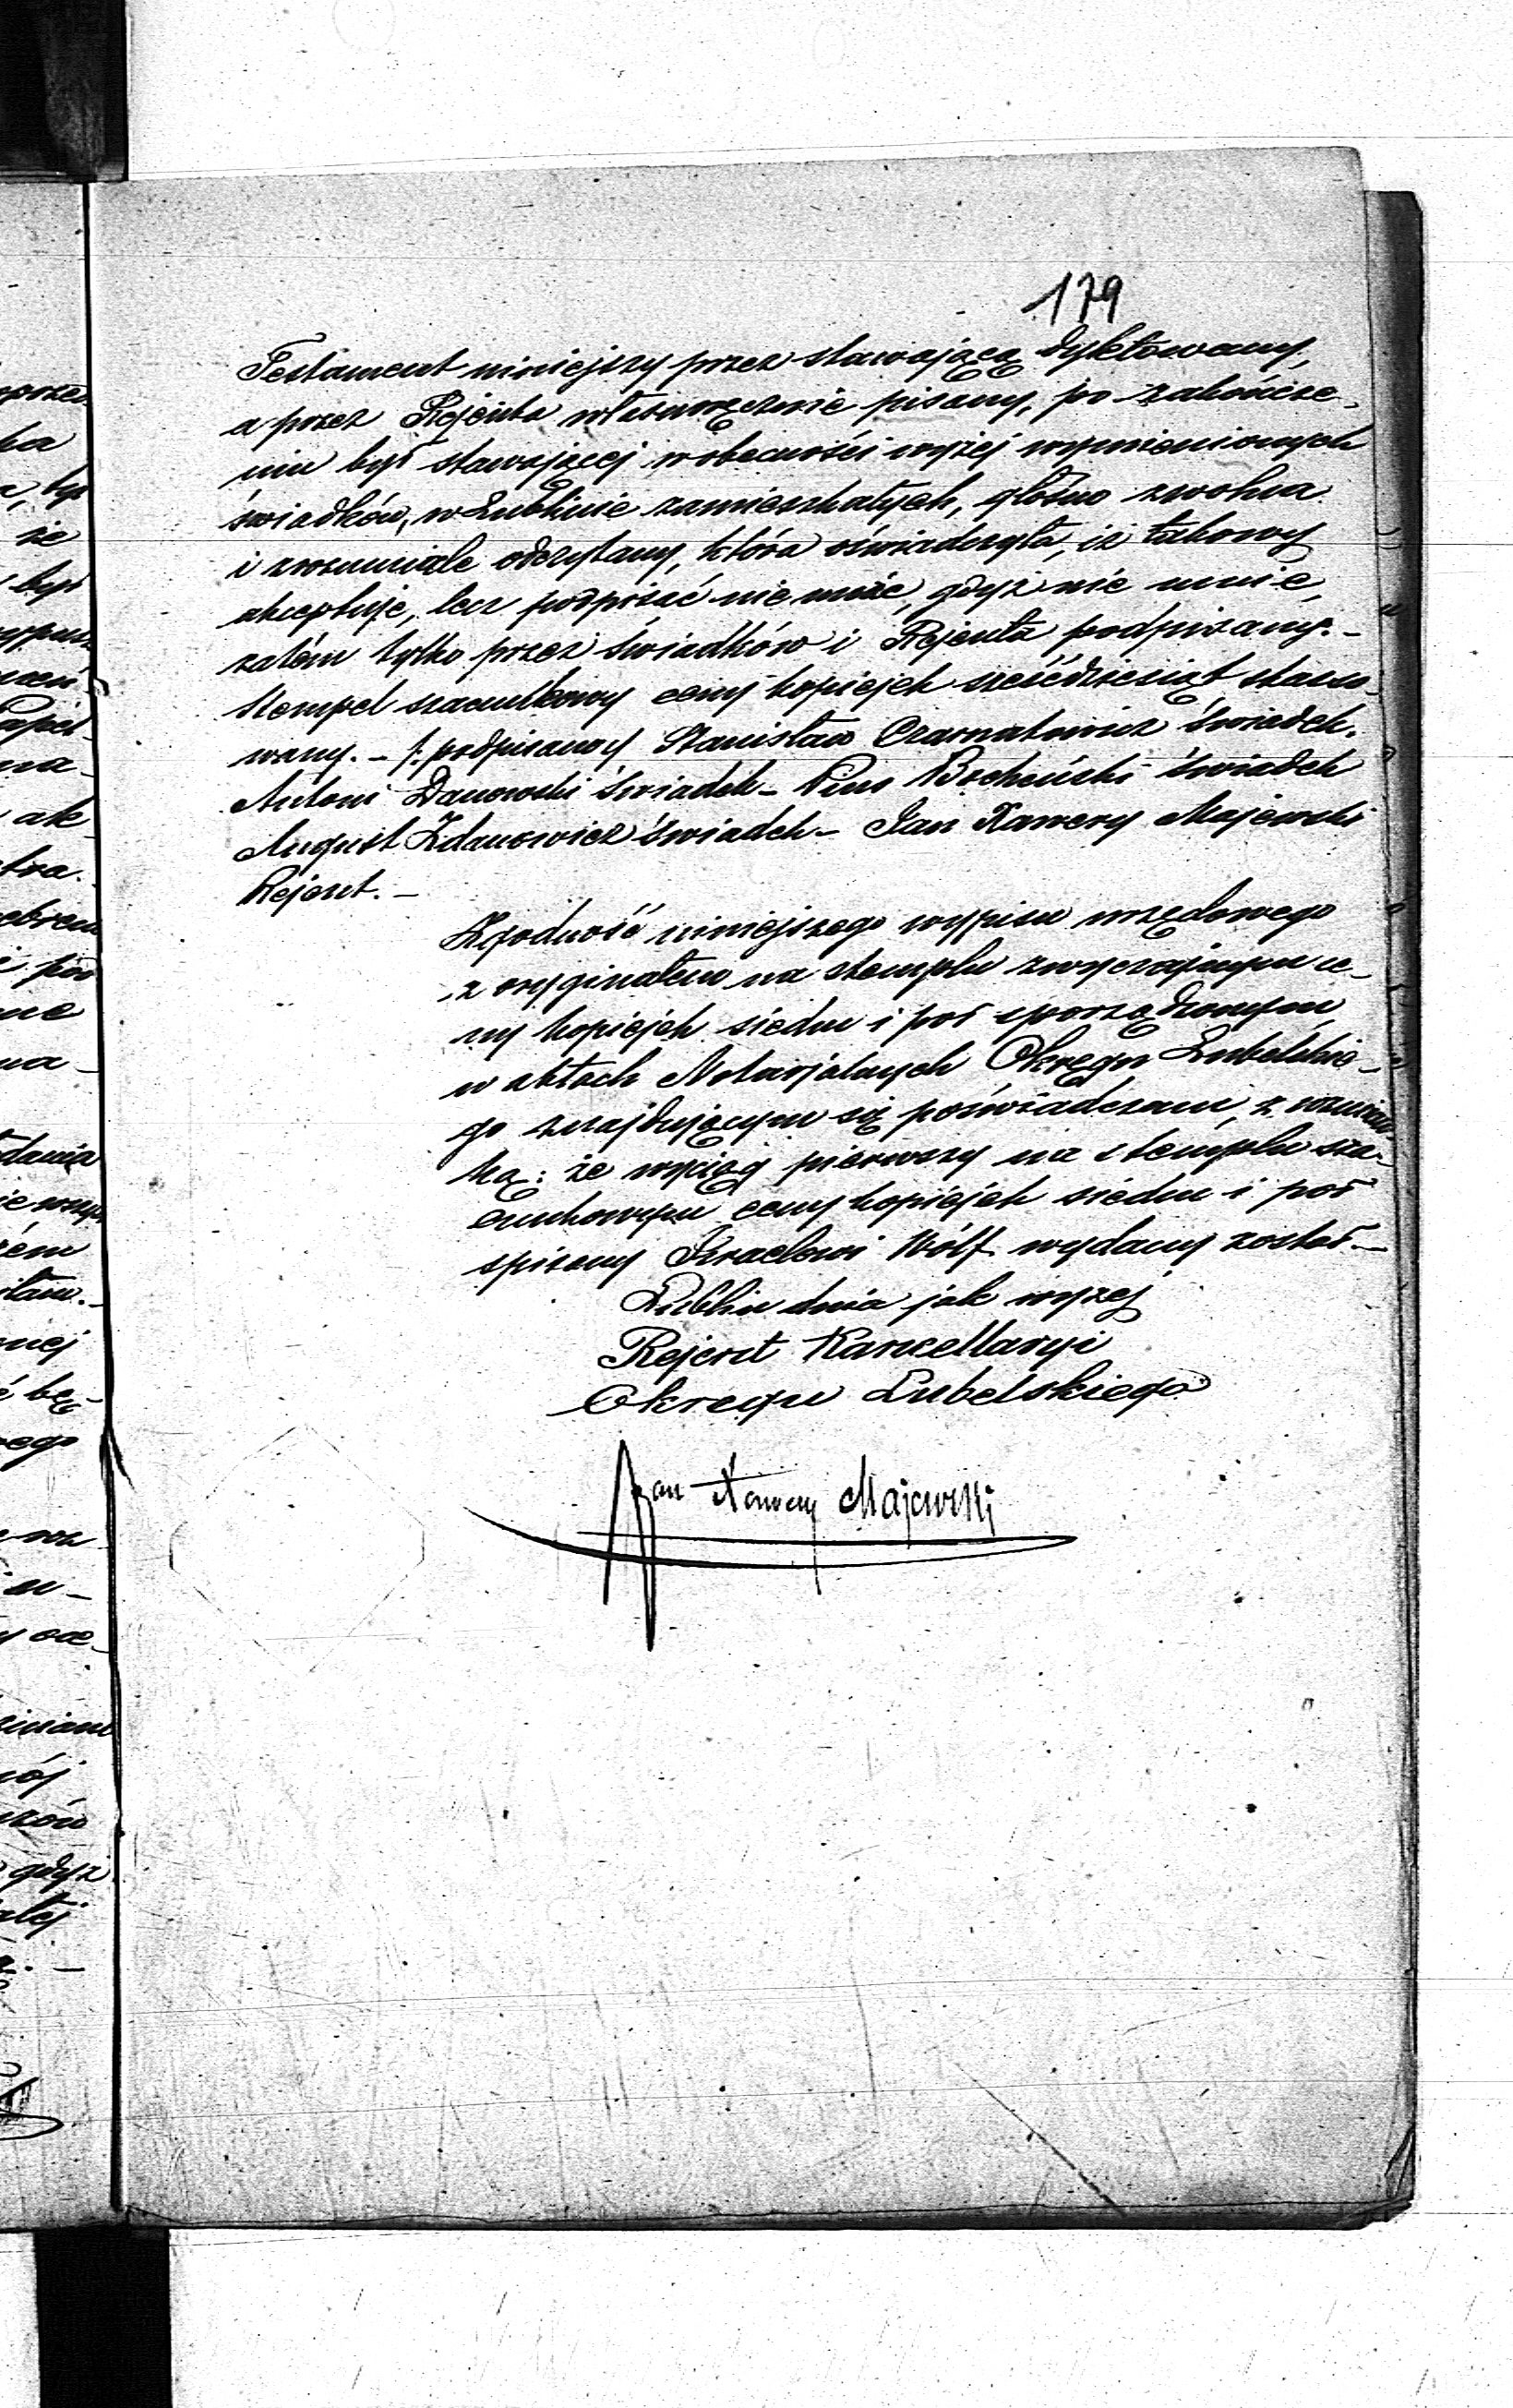 179
Testament niniejszy przez stawającą dyktowany,
a przez Rejenta własnoręcznie pisany, po zakończe-
niu był stawającej w obecności wyżej wymienionych
świadków, w Lublinie zamieszkałych, głośno zwolna
i zrozumiale odczytany, która oświadczyła, iż takowy
akceptuje, lecz podpisać nie może, gdyż nie umie,
zatém tylko przez świadków i Rejenta podpisany. -
Stempel szacunkowy ceny kopiejek sześćdziesiąt skasso-
wany. - /: podpisany Stanisław Czarnatowicz świadek.
Antoni Danowski świadek - Pius Bocheński świadek
August Zdanowicz świadek - Jan Xawery Majewski
Rejent. -
Zgodność niniejszego wypisu urzędowego
z oryginałem na stemplu zwyczajnym ce-
ny kopiejek siedm i pół sporządzonym
w aktach Notarjalnych Okręgu Lubelskie-
go znajdującym się poświadczam, z wzmian-
ką: że wyciąg pierwszy na stemplu sza-
cunkowym ceny kopiejek siedm i pół
spisany Izraelowi Wólf wydany został -
Lublin dnia jak wyżej
Rejent Kancellaryi
Okręgu Lubelskiego
Jan Xawery Majewski